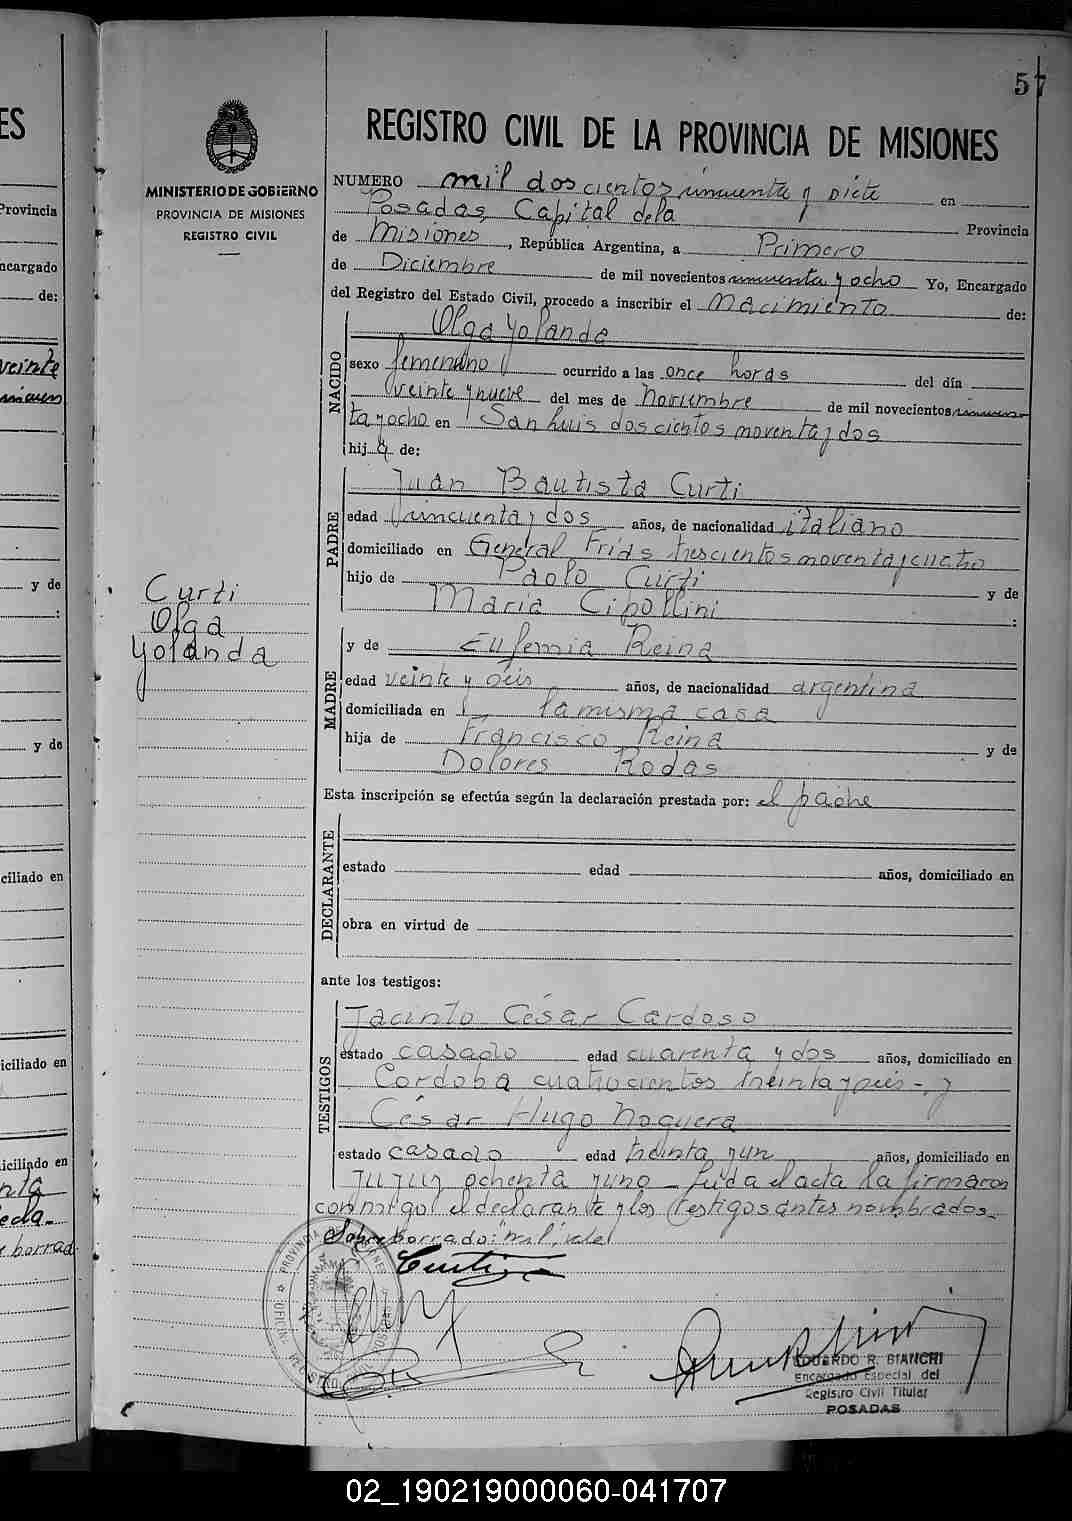 57
REGISTRO CIVIL DE LA PROVINCIA DE MISIONES
MINISTERIO DE GOBIERNO
PROVINCIA DE MISIONES
REGISTRO CIVIL
NUMERO mil doscientos cincuenta y siete en
Posadas, Capital dela Provincia
de Misiones, República Argentina, a Primero
de Diciembre de mil novecientos cincuenta y ocho Yo, Encargado
del Registro del Estado Civil, procedo a inscribir el Nacimiento de:
NACIDO
Olga Yolanda
sexo femenino ocurrido a las once horas del día
veinte y nueve del mes de Noviembre de mil novecientos cincuen
ta y ocho en San Luis doscientos noventa y dos
hija de:
PADRE
Juan Bautista Curti
edad cincuenta y dos años, de nacionalidad italiano
domiciliado en General Frías trescientos noventa y cuatro
hijo de Paolo Curti y de
María Cipollini :
Curti
Olga
Yolanda
MADRE
y de Eufemia Reina
edad veinte y seis años, de nacionalidad argentina
domiciliada en la misma casa
hija de Francisco Reina y de
Dolores Rodas
Esta inscripción se efectúa según la declaración prestada por: el padre
DECLARANTE
estado edad años, domiciliado en
obra en virtud de
ante los testigos:
TESTIGOS
Jacinto César Cardoso
estado casado edad cuarenta y dos años, domiciliado en
Cordoba cuatrocientos treinta y seis - y
César Hugo Noguera
estado casado edad treinta y un años, domiciliado en
Jujuy ochenta y uno - Leida el acta la firmaron
conmigo el declarante y los testigos antes nombrados.
Sobre borrado: "mil", vale
Curti
EDUARDO R. BIANCHI
Encargado Especial del
Registro Civil Titular
POSADAS
ES
Provincia
ncargado
de:
veinte
y de
:
y de
ciliado en
iciliado en
iciliado en
nta
ecla-
borrad
02_190219000060-041707